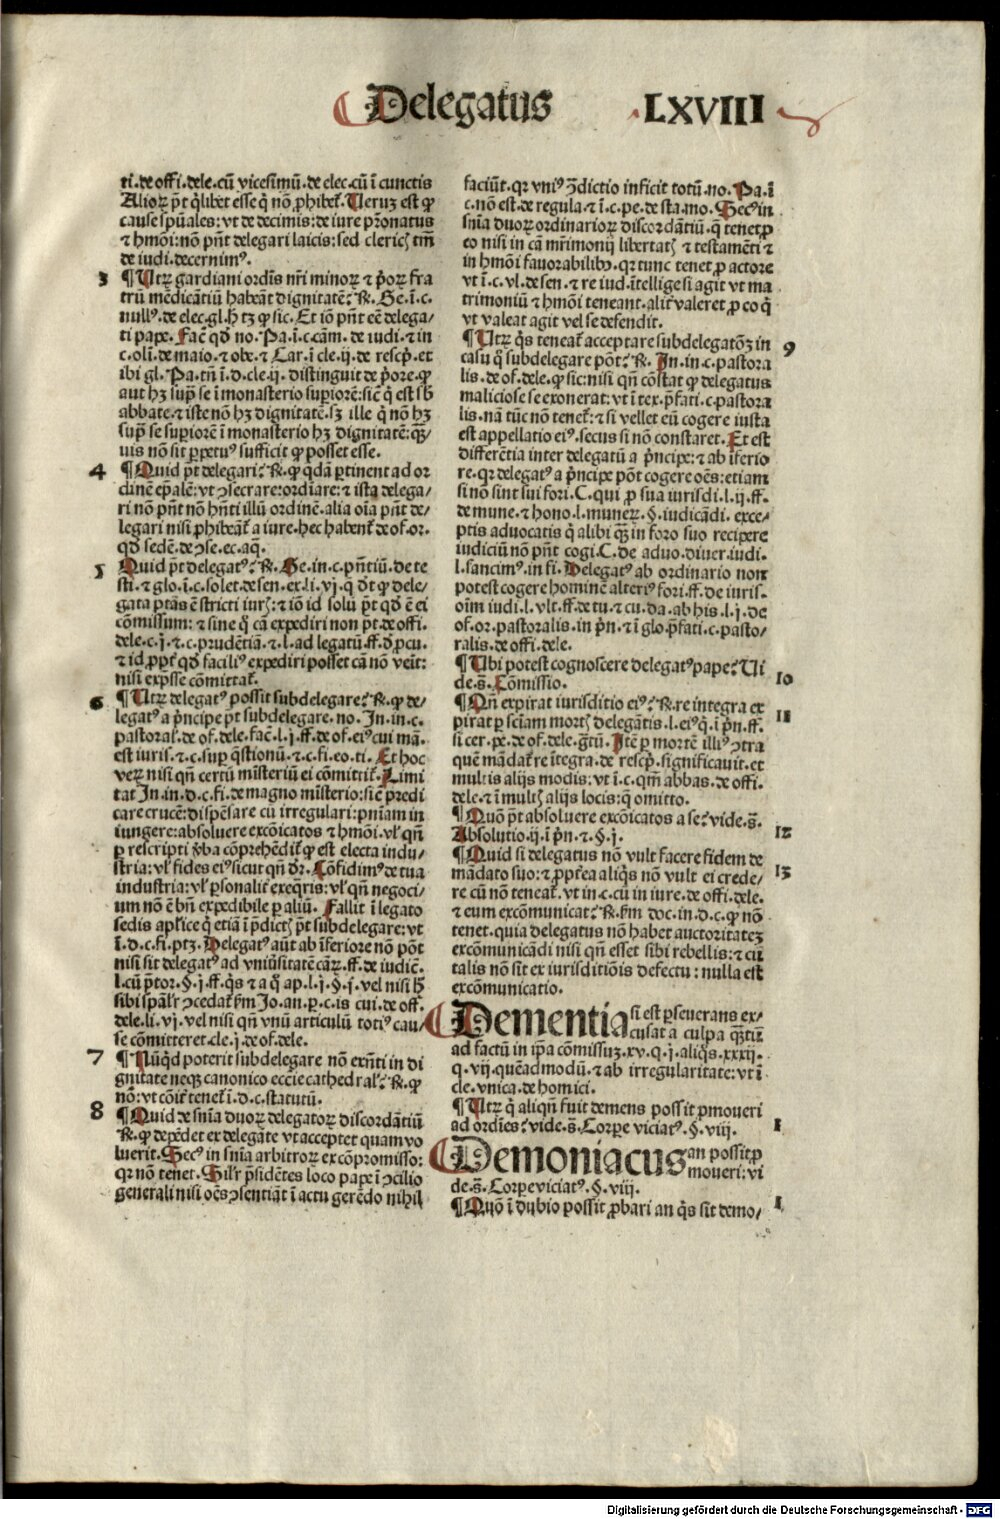 Delegatus LXVIII
ti.de offi.dele.cū vicesimū.de elec.cū ī cunctis
Alioꝝ pt̄ q̄libet esse q̄ nō ꝓhibet̄. Veruꝫ est ꝙ
cause spūales: vt de decimis: de iure pr̄onatus
⁊ hmōi: nō pn̄t delegari laicis: sed clericꝭ tm̄
de iudi.decernimꝰ.
3 ¶ Vtꝝ gardiani ordīs nr̄i minoꝝ ⁊ p̄oꝝ fra
trū mēdicātiū habeāt dignitatē? R̄. Ge.ī.c.
nullꝰ.de elec.gl.h̄ tꝫ ꝙ sic. Et iō pn̄t eē delega-
ti pape. Fac̄ qd̄ no. Pa.ī.c.cām.de iudi.⁊ in
c.oli.de maio.⁊ obe.⁊ Car.ī cle.ij.de rescp̄.et
ibi gl. Pa.tn̄ ī.d.cle.ij. distinguit de p̄ore.ꝙ
aut hꝫ sup̄ se ī monasterio supiorē: sic̄ q̄ est sb̄
abbate.⁊ iste nō hꝫ dignitatē.sꝫ ille q̄ nō hꝫ
sup̄ se supiorē ī monasterio hꝫ dignitatē: qꝫ-
uis nō sit ꝑpetuꝰ sufficit ꝙ posset esse.
4 ¶ Quid pt̄ delegari? R̄. ꝙ qdā ꝑtinent ad or
dinē ep̄alē: vt ↄsecrare: ordiare: ⁊ ista delega-
ri nō pn̄t nō hn̄ti illū ordinē. alia oīa pn̄t de-
legari nisi ꝓhibeāt̄ a iure. hec habent̄ de of.or.
qd̄ sedē.de ↄse.ec.aq̄.
5 Quid pt̄ delegatꝰ? R̄. Ge.in.c.pn̄tiū.de te
sti.⁊ glo.ī.c.solet.de sen.ex.li.vj.q̄ dt̄ ꝙ dele-
gata ptās ē stricti iurꝭ: ⁊ iō id solū pt̄ qd̄ ē ei
cōmissum: ⁊ sine q̄ cā expediri non pt̄.de offi.
dele.c.j.⁊ c.prudētiā.⁊ l.ad legatū.ff.d̄ ꝓcu.
⁊ id ꝓpt̄ qd̄ faciliꝰ expediri posset cā nō veīt:
nisi exp̄sse cōmittat̄.
6 ¶ Vtꝝ delegatꝰ possit subdelegare? R̄. ꝙ de-
legatꝰ a p̄ncipe pt̄ subdelegare.no. In.in.c.
pastoral̄.de of.dele.fac̄.l.j.ff.de of.eiꝰ cui mā.
est iuris.⁊.c.sup q̄stionū.⁊.c.fi.eo.ti. Et hoc
veꝝ nisi qn̄ certū mīsteriū ei cōmittit̄. Limi
tat In.in.d.c.fi.de magno mīsterio: sic̄ predi
care crucē: dispēsare cū irregulari: pn̄iam in
iungere: absoluere excōicatos ⁊ hmōi. vl̄ qn̄
ꝑ rescripti v̄ba cōprehēdit̄ ꝙ est electa indu-
stria: vl̄ fides eiꝰ sicut qn̄ dr̄. Cōfidimꝰ de tua
industria: vl̄ ꝑsonalit̄ exeq̄ris: vl̄ qn̄ negoci-
um nō ē bn̄ expedibile ꝑ aliū. Fallit ī legato
sedis aplice q̄ etiā ī p̄dictꝭ pt̄ subdelegare: vt
ī.d.c.fi.ptꝫ. Delegatꝰ aūt ab īferiore nō pōt
nisi sit delegatꝰ ad vniūsitatē cāꝝ.ff.de iudic̄.
l.cū p̄tor.§.j.ff.q̄s ⁊ a q̄ ap.l.j.§.j.vel nisi h̄
sibi spāl̄r ↄcedat̄ ẜm Jo.an.ꝑ.c.is cui.de off.
dele.li.vj.vel nisi qn̄ vnū articulū totiꝰ cau-
se cōmitteret.cle.j.de of.dele.
7 ¶ Nūqd̄ poterit subdelegare nō exn̄ti in di
gnitate neqꝫ canonico eccīe cathedral̄? R̄. ꝙ
nō: vt cōit̄ tenet̄ ī.d.c.statutū.
8 ¶ Quid de sn̄ia duoꝝ delegatoꝝ discordātiū
R̄. ꝙ depēdet ex delegāte vt acceptet quam vo
luerit. Secꝰ in sn̄ia arbitroꝝ ex cōpromisso:
qꝛ nō tenet. Sil̄r p̄sidētes loco pape ī ↄcilio
generali nisi oēs ↄsentiāt ī actu gerēdo nihil
faciūt. qꝛ vniꝰ ↄ̄dictio inficit totū. no. Pa.ī
c.nō est.de regula.⁊ ī.c.pe.de sta.mo. Secꝰ in
sn̄ia duoꝝ ordinarioꝝ discordātiū. q̄ tenet ꝓ
eo nisi in cā mr̄imonij libertatꝭ ⁊ testamēti ⁊
in hmōi fauorabilibꝫ. qꝛ tunc tenet ꝓ actore
vt ī.c.vl.de sen.⁊ re iud.ītellige si agit vt ma
trimoniū ⁊ hmōi teneant. alit̄ valeret ꝓ eo q̄
vt valeat agit vel se defendit.
9 ¶ Vtꝝ q̄s teneat̄ acceptare subdelegatōꝫ in
casu q̄ subdelegare pōt? R̄. In.in.c.pastora
lis.de of.dele.ꝙ sic: nisi qn̄ cōstat ꝙ delegatus
maliciose se exonerat: vt ī tex.p̄fati.c.pastora
lis. nā tūc nō tenet̄: ⁊ si vellet eū cogere iusta
est appellatio eiꝰ. secus si nō constaret. Et est
differētia inter delegatū a p̄ncipe: ⁊ ab īferio
re. qꝛ delegatꝰ a p̄ncipe pōt cogere oēs: etiam
si nō sint sui fori. C. qui ꝓ sua iurisdi.l.ij.ff.
de mune.⁊ hono.l.muneꝝ.§.iudicādi. exce-
ptis aduocatis q̄ alibi qꝫ in foro suo recipere
iudiciū nō pn̄t cogi. C. de aduo.diuer.iudi.
l.sancimꝰ.in fi. Delegatꝰ ab ordinario non
potest cogere hominē alteriꝰ fori.ff.de iuris.
oīm iudi.l.vlt.ff.de tu.⁊ cu.da.ab his.l.j.de
of.or.pastoralis.in p̄n.⁊ ī glo.p̄fati.c.pasto-
ralis.de offi.dele.
10 ¶ Vbi potest cognoscere delegatꝰ pape? Vi
de.s̄. Cōmissio.
11 ¶ Qn̄ expirat iurisditio eiꝰ? R̄. re integra ex
pirat ꝑ sciam mortꝭ delegātis.l.eiꝰ q̄.ī p̄n.ff.
si cer.pe.de of.dele.gr̄tū. Itē ꝑ mortē illiꝰ ↄtra
quē mādat̄ re ītegra.de rescp̄.significauit.et
multis alijs modis: vt ī.c.qm̄ abbas.de offi.
dele.⁊ ī multꝭ alijs locis: q̄ omitto.
12 ¶ Quō pt̄ absoluere excōicatos a se? vide.s̄.
Absolutio.ij.ī p̄n.⁊.§.j.
13 ¶ Quid si delegatus nō vult facere fidem de
mādato suo: ⁊ ꝓpt̄ea aliq̄s nō vult ei crede-
re cū nō teneat̄. vt in.c.cū in iure.de offi.dele.
⁊ eum excōmunicat? R̄. ẜm doc.in.d.c.ꝙ nō
tenet. quia delegatus nō habet auctoritateꝫ
excōmunicādi nisi qn̄ esset sibi rebellis: ⁊ cū
talis nō sit ex iurisditiōis defectu: nulla est
excōmunicatio.
Dementia si est ꝑseuerans ex-
cusat a culpa qꝫtū
ad factū in ip̄a cōmissuꝫ.xv.q.j.aliq̄s.xxxij.
q.vij.quēadmodū.⁊ ab irregularitate: vt ī
cle.vnica.de homici.
1 ¶ Vtꝝ q̄ aliqn̄ fuit demens possit ꝓmoueri
ad ordies? vide.s̄. Corpe viciatꝰ.§.viij.
Demoniacus an possit ꝓ
moueri: vi
de.s̄. Corpe viciatꝰ.§.viij.
1 ¶ Quō ī dubio possit ꝓbari an q̄s sit demo-
Digitalisierung gefördert durch die Deutsche Forschungsgemeinschaft - DFG